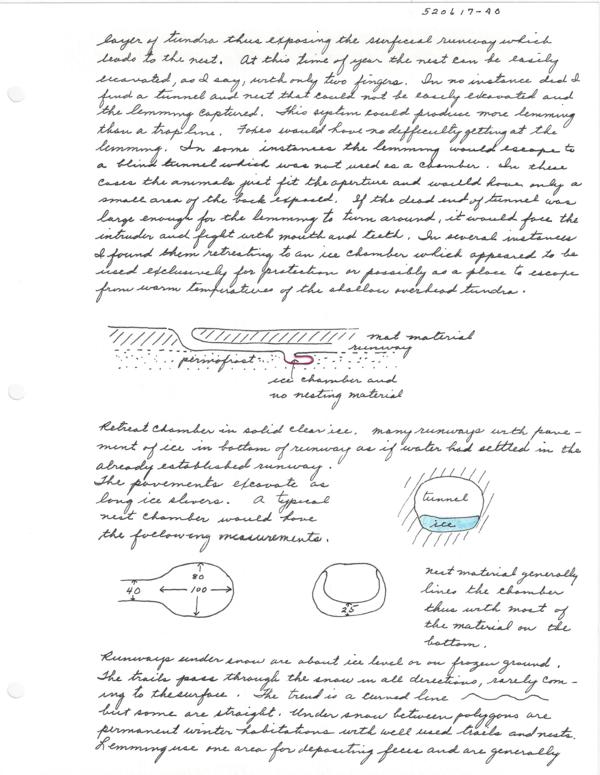 520617-40
layer of tundra thus exposing the surficial runway which
leads to the nest. At this time of year the nest can be easily
excavated, as I say, with only two fingers. In no instance did I
find a tunnel and nest that could not be easily excavated and
the lemming captured. This system could produce more lemming
than a trap line. Foxes would have no difficulty getting at the
lemming. In some instances the lemming would escape to
a blind tunnel which was not used as a chamber. In these
cases the animals just fit the aperture and would have only a
small area of the back exposed. If the dead end of tunnel was
large enough for the lemming to turn around, it would face the
intruder and fight with mouth and teeth. In several instances
I found them retreating to an ice chamber which appeared to be
used exclusively for protection or possibly as a place to escape
from warm temperatures of the shallow overhead tundra.
mat material
runway
permafrost
ice chamber and
no nesting material
Retreat chamber in solid clear ice. Many runways with pave-
ment of ice in bottom of runway as if water had settled in the
already established runway.
The pavements excavate as
long ice slivers. A typical
nest chamber would have
the following measurements.
tunnel
ice
40
80
100
25
Nest material generally
lines the chamber
thus with most of
the material on the
bottom.
Runways under snow are about ice level or on frozen ground.
The trails pass through the snow in all directions, rarely com-
ing to the surface. The trend is a curved line
but some are straight. Under snow between polygons are
permanent winter habitations with well used trails and nests.
Lemming use one area for depositing feces and are generally